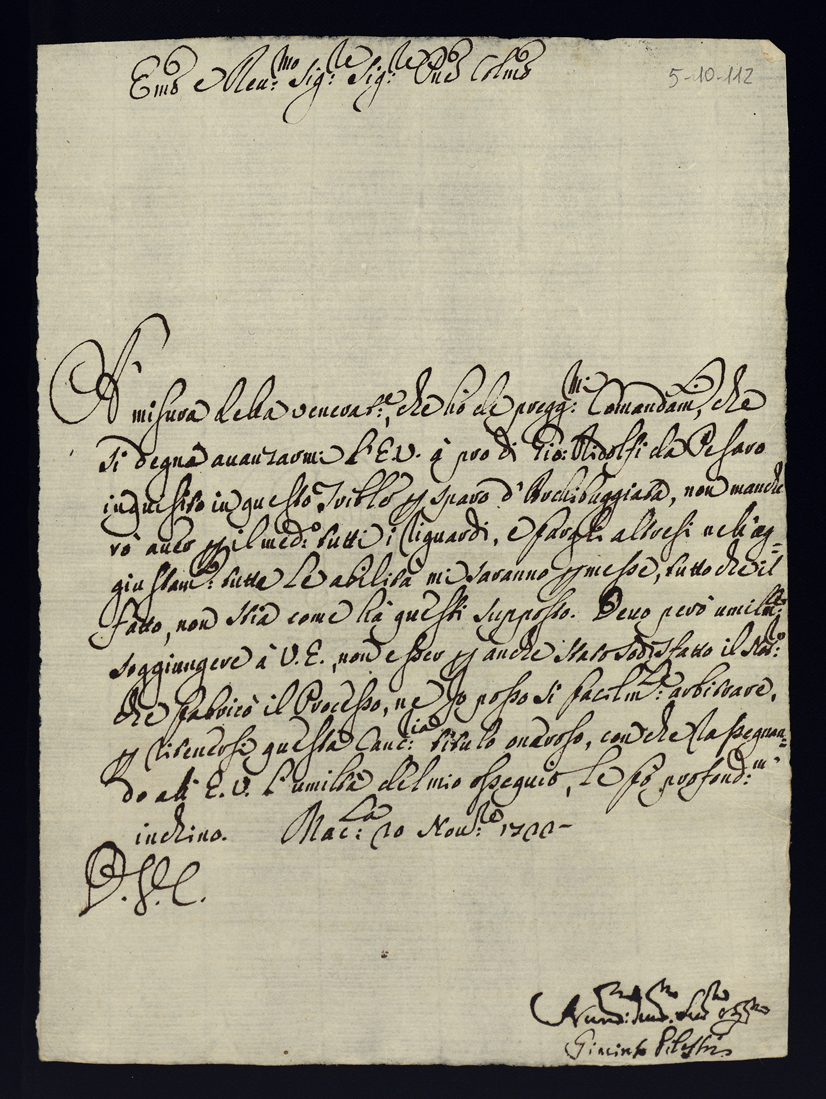 Em̃o e Reu:mo Sig:re Sig:re P̃ne Colm̃o
5-10-112
A' misura della venerat:e, che hò de pregg:mi Comandam:i, che
si degna auanzarmi l'E.V. à pro di Gio: Ridolfi da Pesaro
inquisito in questo Trible p sparo d'Archibuggiata, non manche
rò auer p il med:o tutti i riguardi, e fargli altresi nell'ag=
giustam:to tutte le abilità mi saranno pmesse, tutto che il
fatto, non stia come hà questi supposto. Deuo però umilm:te
soggiungere à V.E., non esser p anche stato sodisfatto il Not:o
che fabricò il Processo, ne Io posso si facilm:te arbitrare,
p ritenersi questa Canc:ia titulo onaroso, con che rassegnan=
do all'E.V. l'umiltà del mio ossequio, le fò profond:mo
inchino. Mac:ta 10 Nou:re 1722
D. V. E.
Giacinto